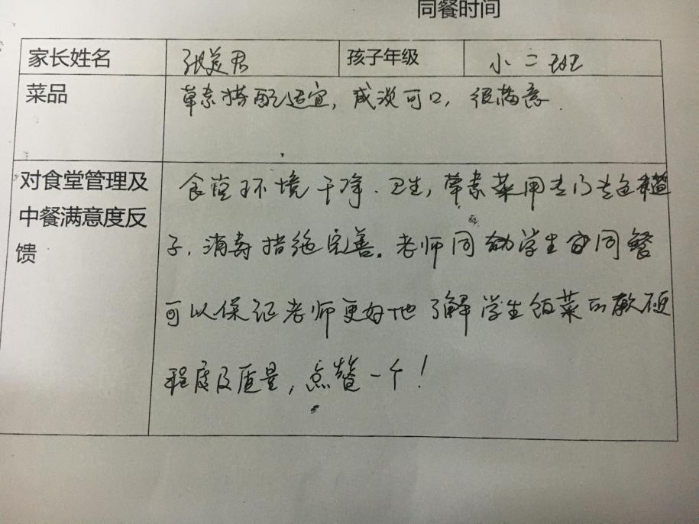 同餐时间
家长姓名 张美君 孩子年级 小二班
菜品 荤素搭配适宜，咸淡可口，很满意
对食堂管理及 食堂环境干净、卫生，荤素菜用专门专
中餐满意度反 子，消毒措施完善。老师同学生同餐
馈
可以保证老师更好地了解学生饭菜的软硬
程度及质量，点赞一个！